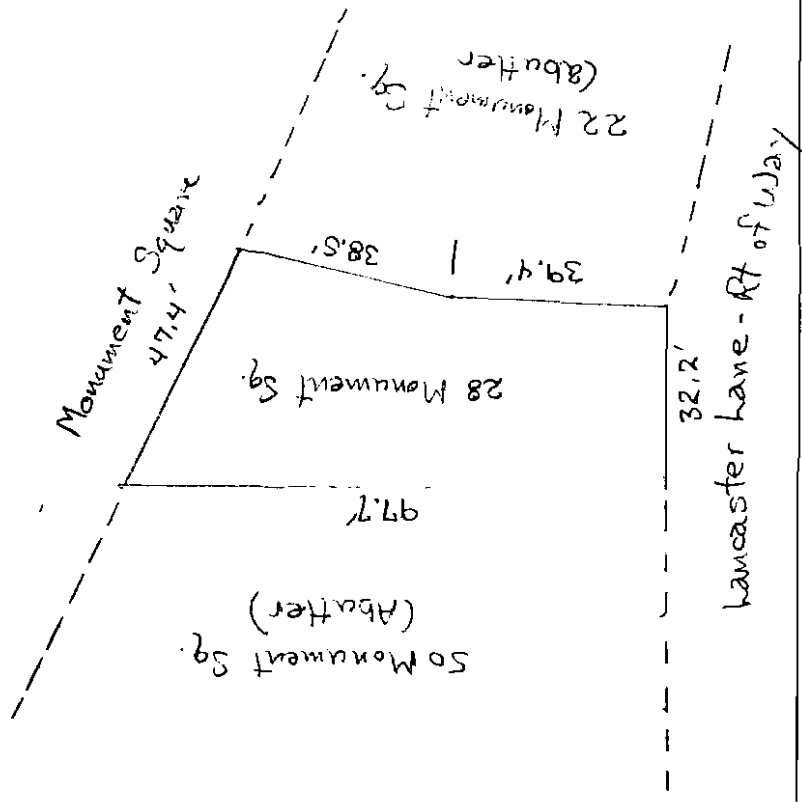 22 Monument Sq.
(abutter
Monument Square
47.4'
38.5'
39.4'
28 Monument Sq.
32.2'
Lancaster Lane - Rt of Way
97.7'
50 Monument Sq.
(Abutter)